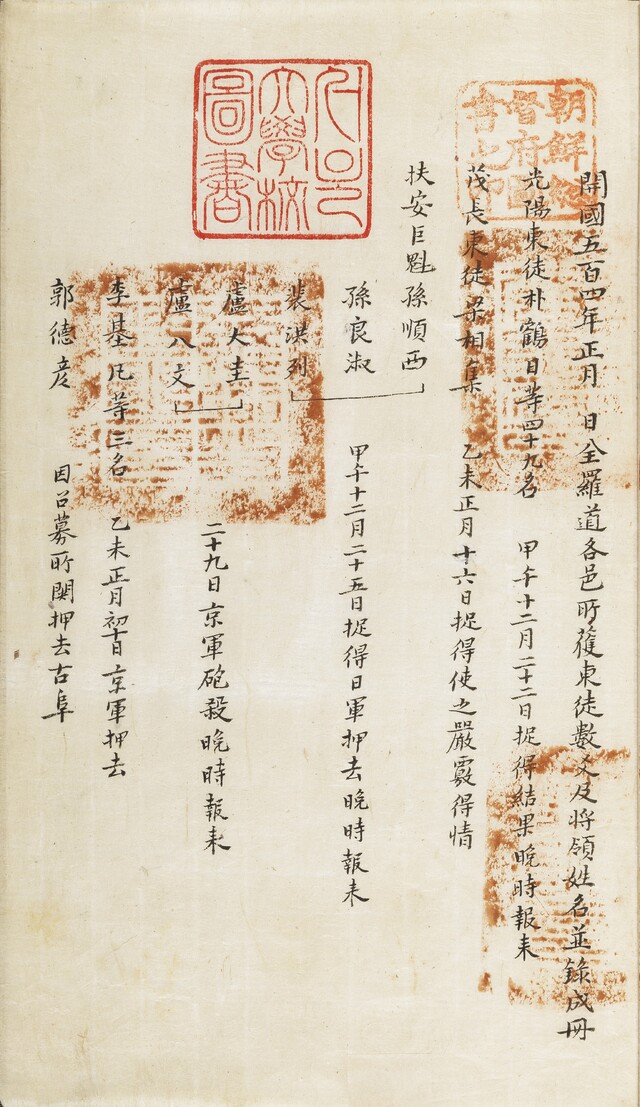 朝鮮總
督府圖
書之印
서울
大學校
圖書
開國五百四年正月 日全羅道各邑所獲東徒數爻及將領姓名並錄成冊
光陽東徒朴鶴日等四十九名 甲午十二月二十二日捉得結果晩時報来
茂長東徒梁相集 乙未正月十六日捉得使之嚴覈得情
扶安巨魁孫順西
孫良淑 甲午十二月二十五日捉得日軍押去晩時報来
裴洪列
盧大圭 二十九日京軍砲殺晩時報来
盧八文
李基凡等三名 乙未正月初十日京軍押去
郭德彦 因召募所関押去古阜